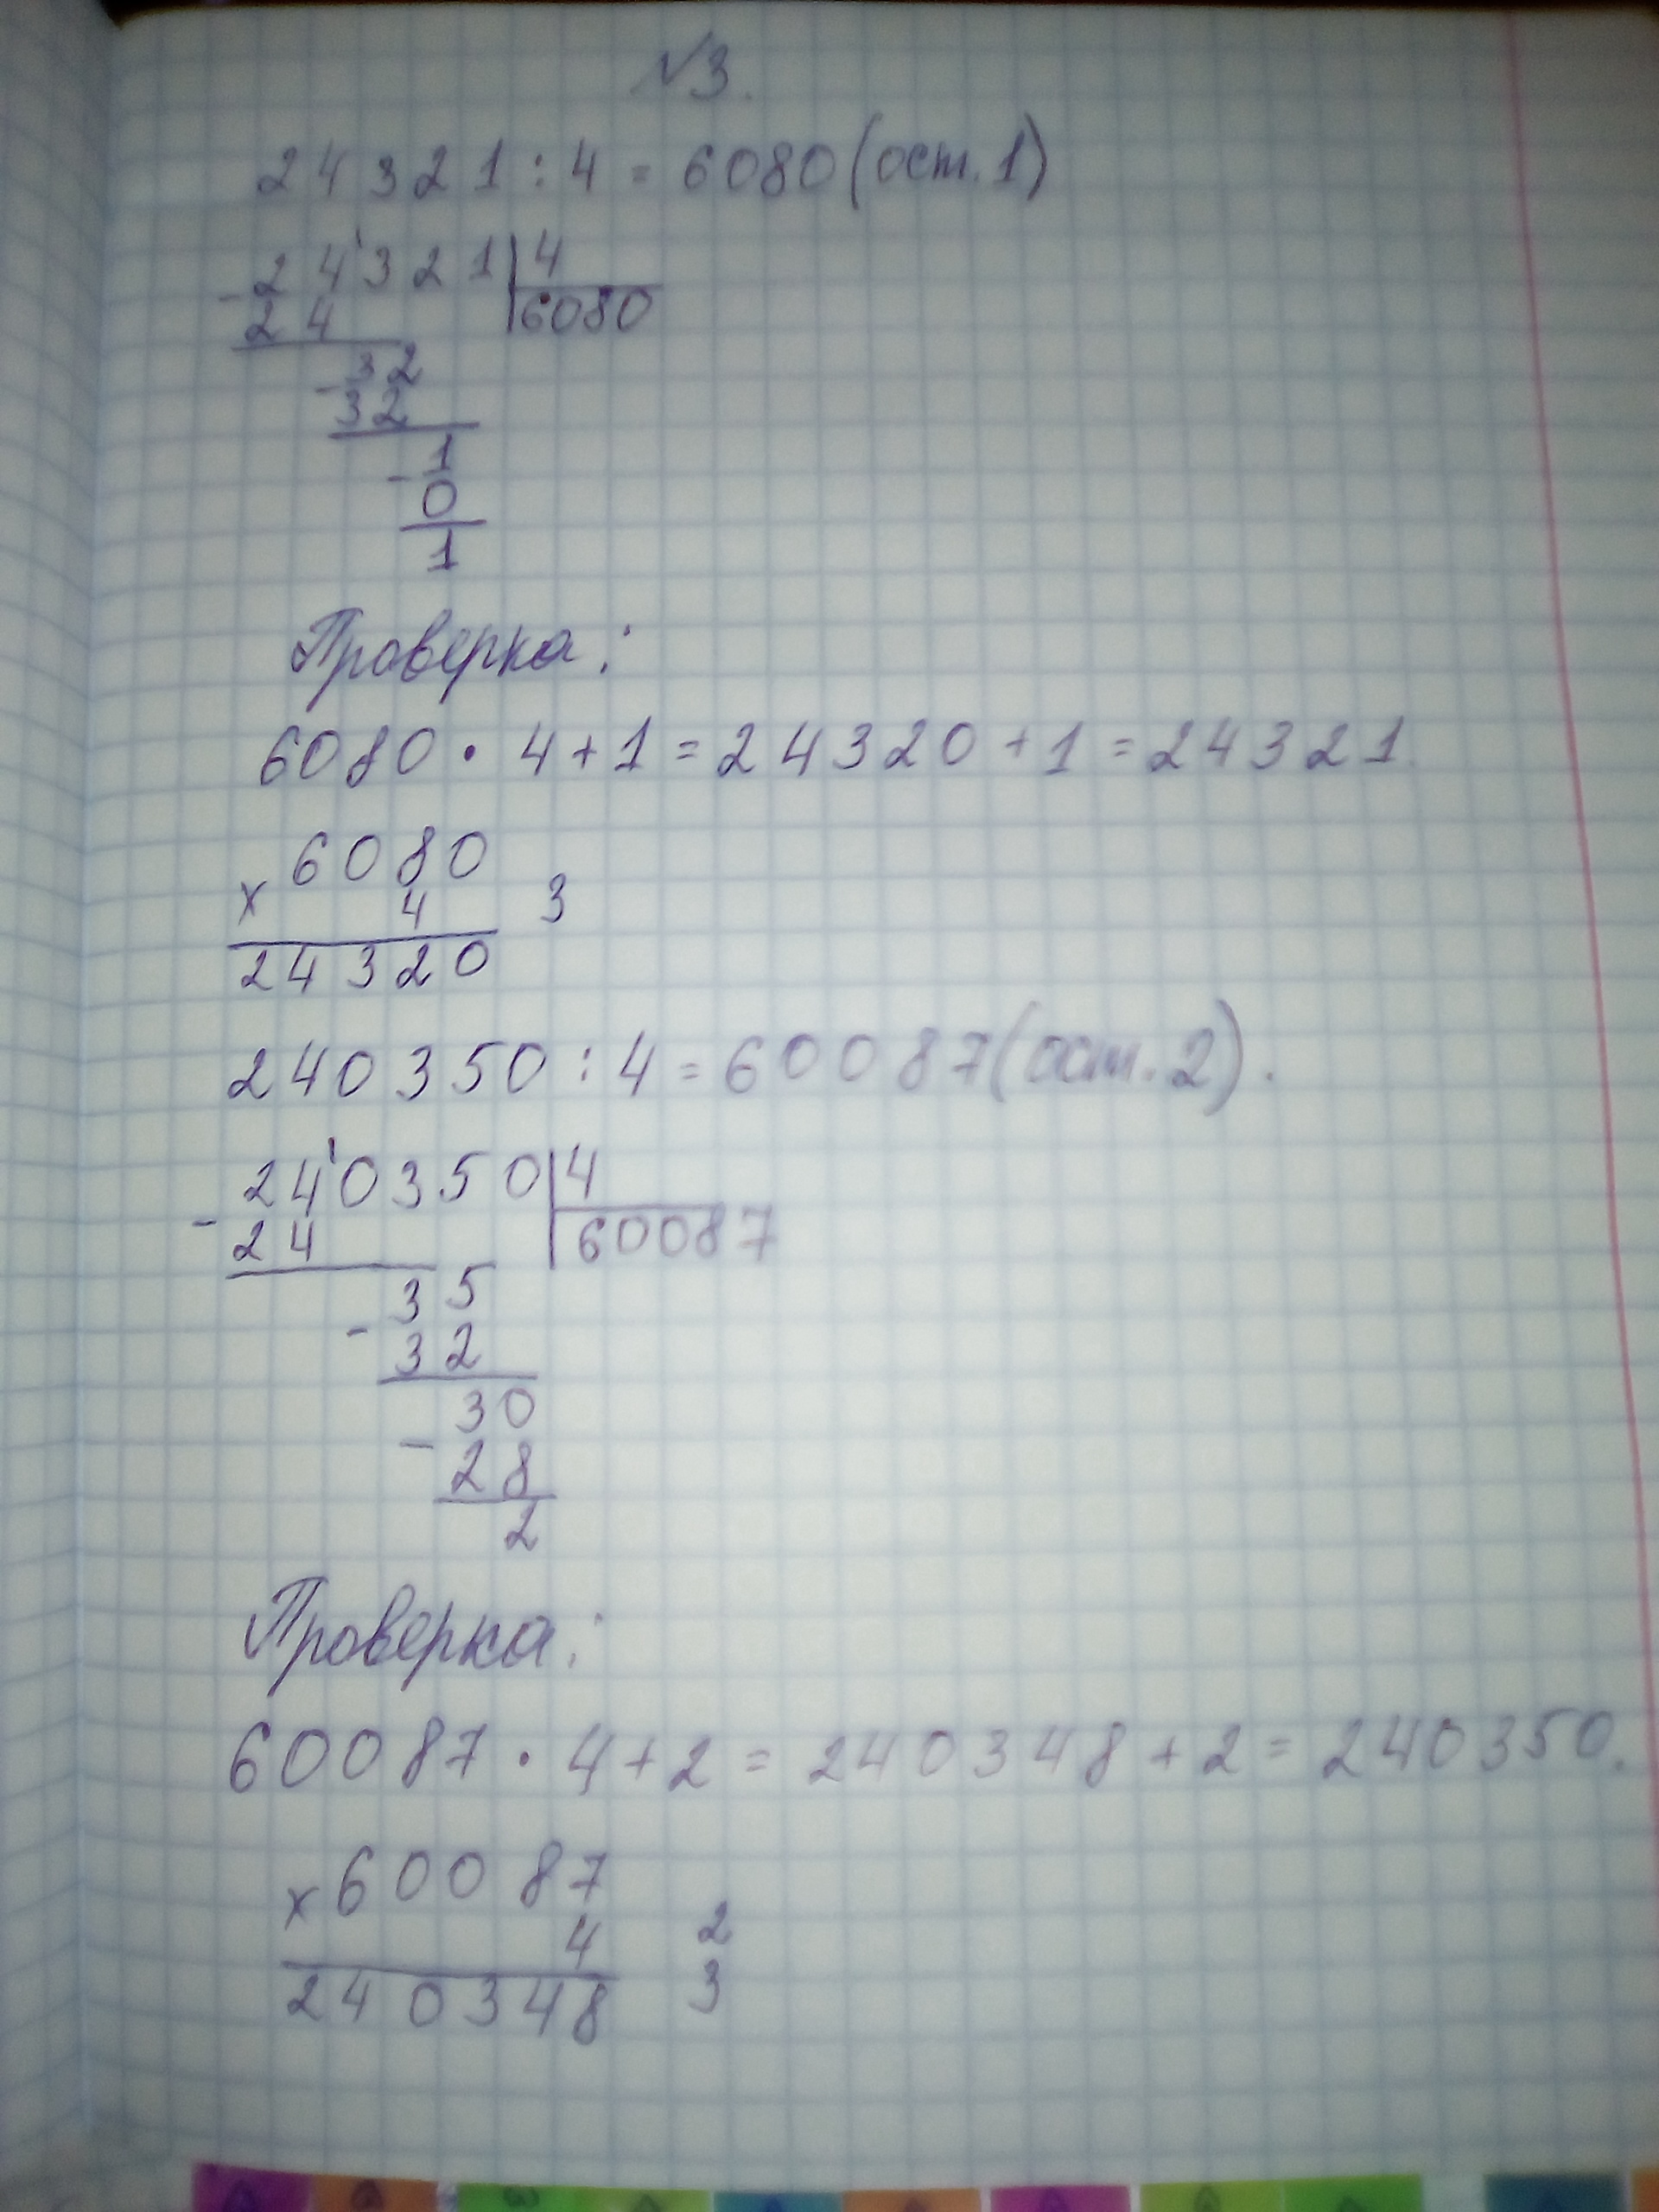 №3.
24321:4=6080(ост.1)
-24'321|4
24 6080
-32
32
-1
0
1
Проверка:
6080·4+1=24320+1=24321.
×6080
4 3
24320
240350:4=60087(ост.2).
-24'0350|4
24 60087
-35
32
-30
28
2
Проверка:
60087·4+2=240348+2=240350.
×60087
4 2
240348 3